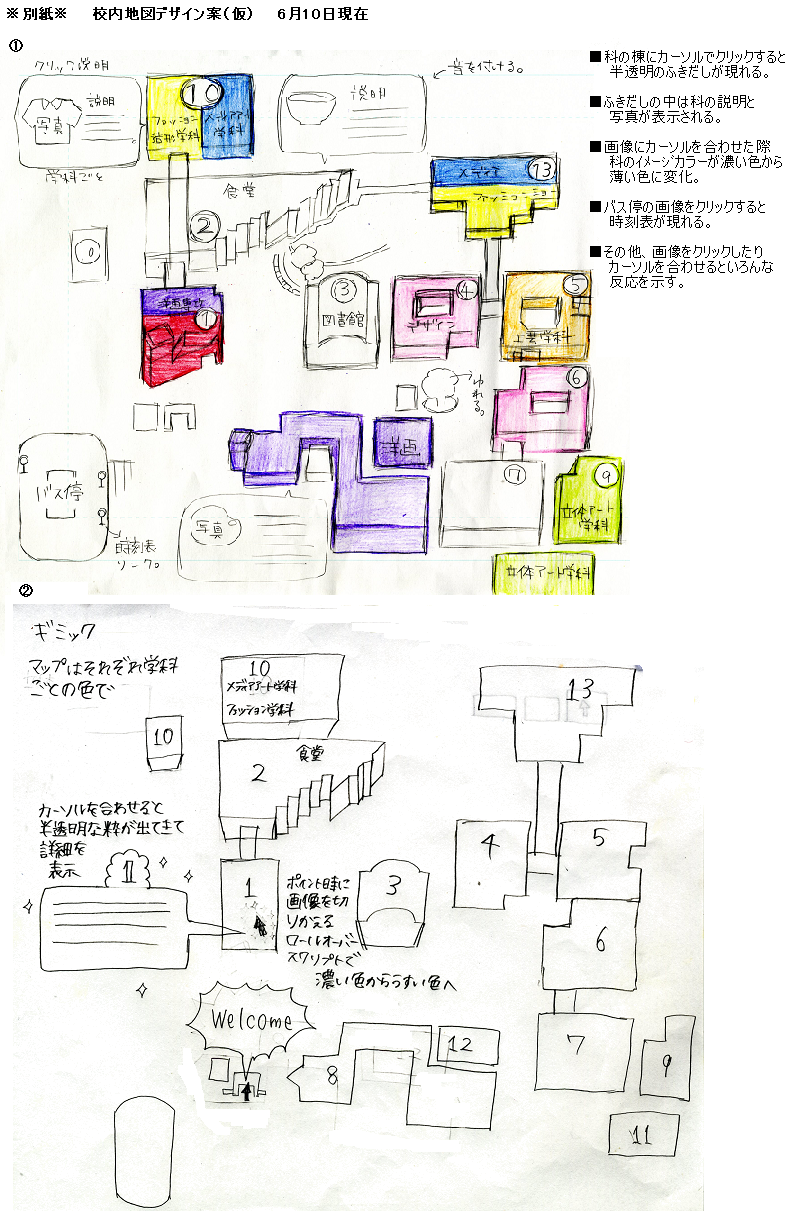 ※別紙※　校内地図デザイン案（仮）　6月10日現在
①
クリック説明
写真
説明
学科ごと
10
ファッション
造形学科
メディアアート
学科
説明
音を付ける。
■科の棟にカーソルでクリックすると
半透明のふきだしが現れる。
■ふきだしの中は科の説明と
写真が表示される。
■画像にカーソルを合わせた際
科のイメージカラーが濃い色から
薄い色に変化。
■バス停の画像をクリックすると
時刻表が現れる。
■その他、画像をクリックしたり
カーソルを合わせるといろんな
反応を示す。
食堂
2
メディア
13
ファッション
1
3
図書館
4
デザイン
5
工芸学科
ゆれる。
6
洋画
7
9
立体アート
学科
立体アート学科
バス停
時刻表
リンク。
写真
②
ギミック
マップはそれぞれ学科
ごとの色で
10
メディアアート学科
ファッション学科
10
2
食堂
13
カーソルを合わせると
半透明な枠が出てきて
詳細を
表示
1
1
ポイント時に
画像を切
りかえる
ロールオーバー
スクリプトで
濃い色からうすい色へ
3
4
5
6
7
Welcome
8
12
9
11